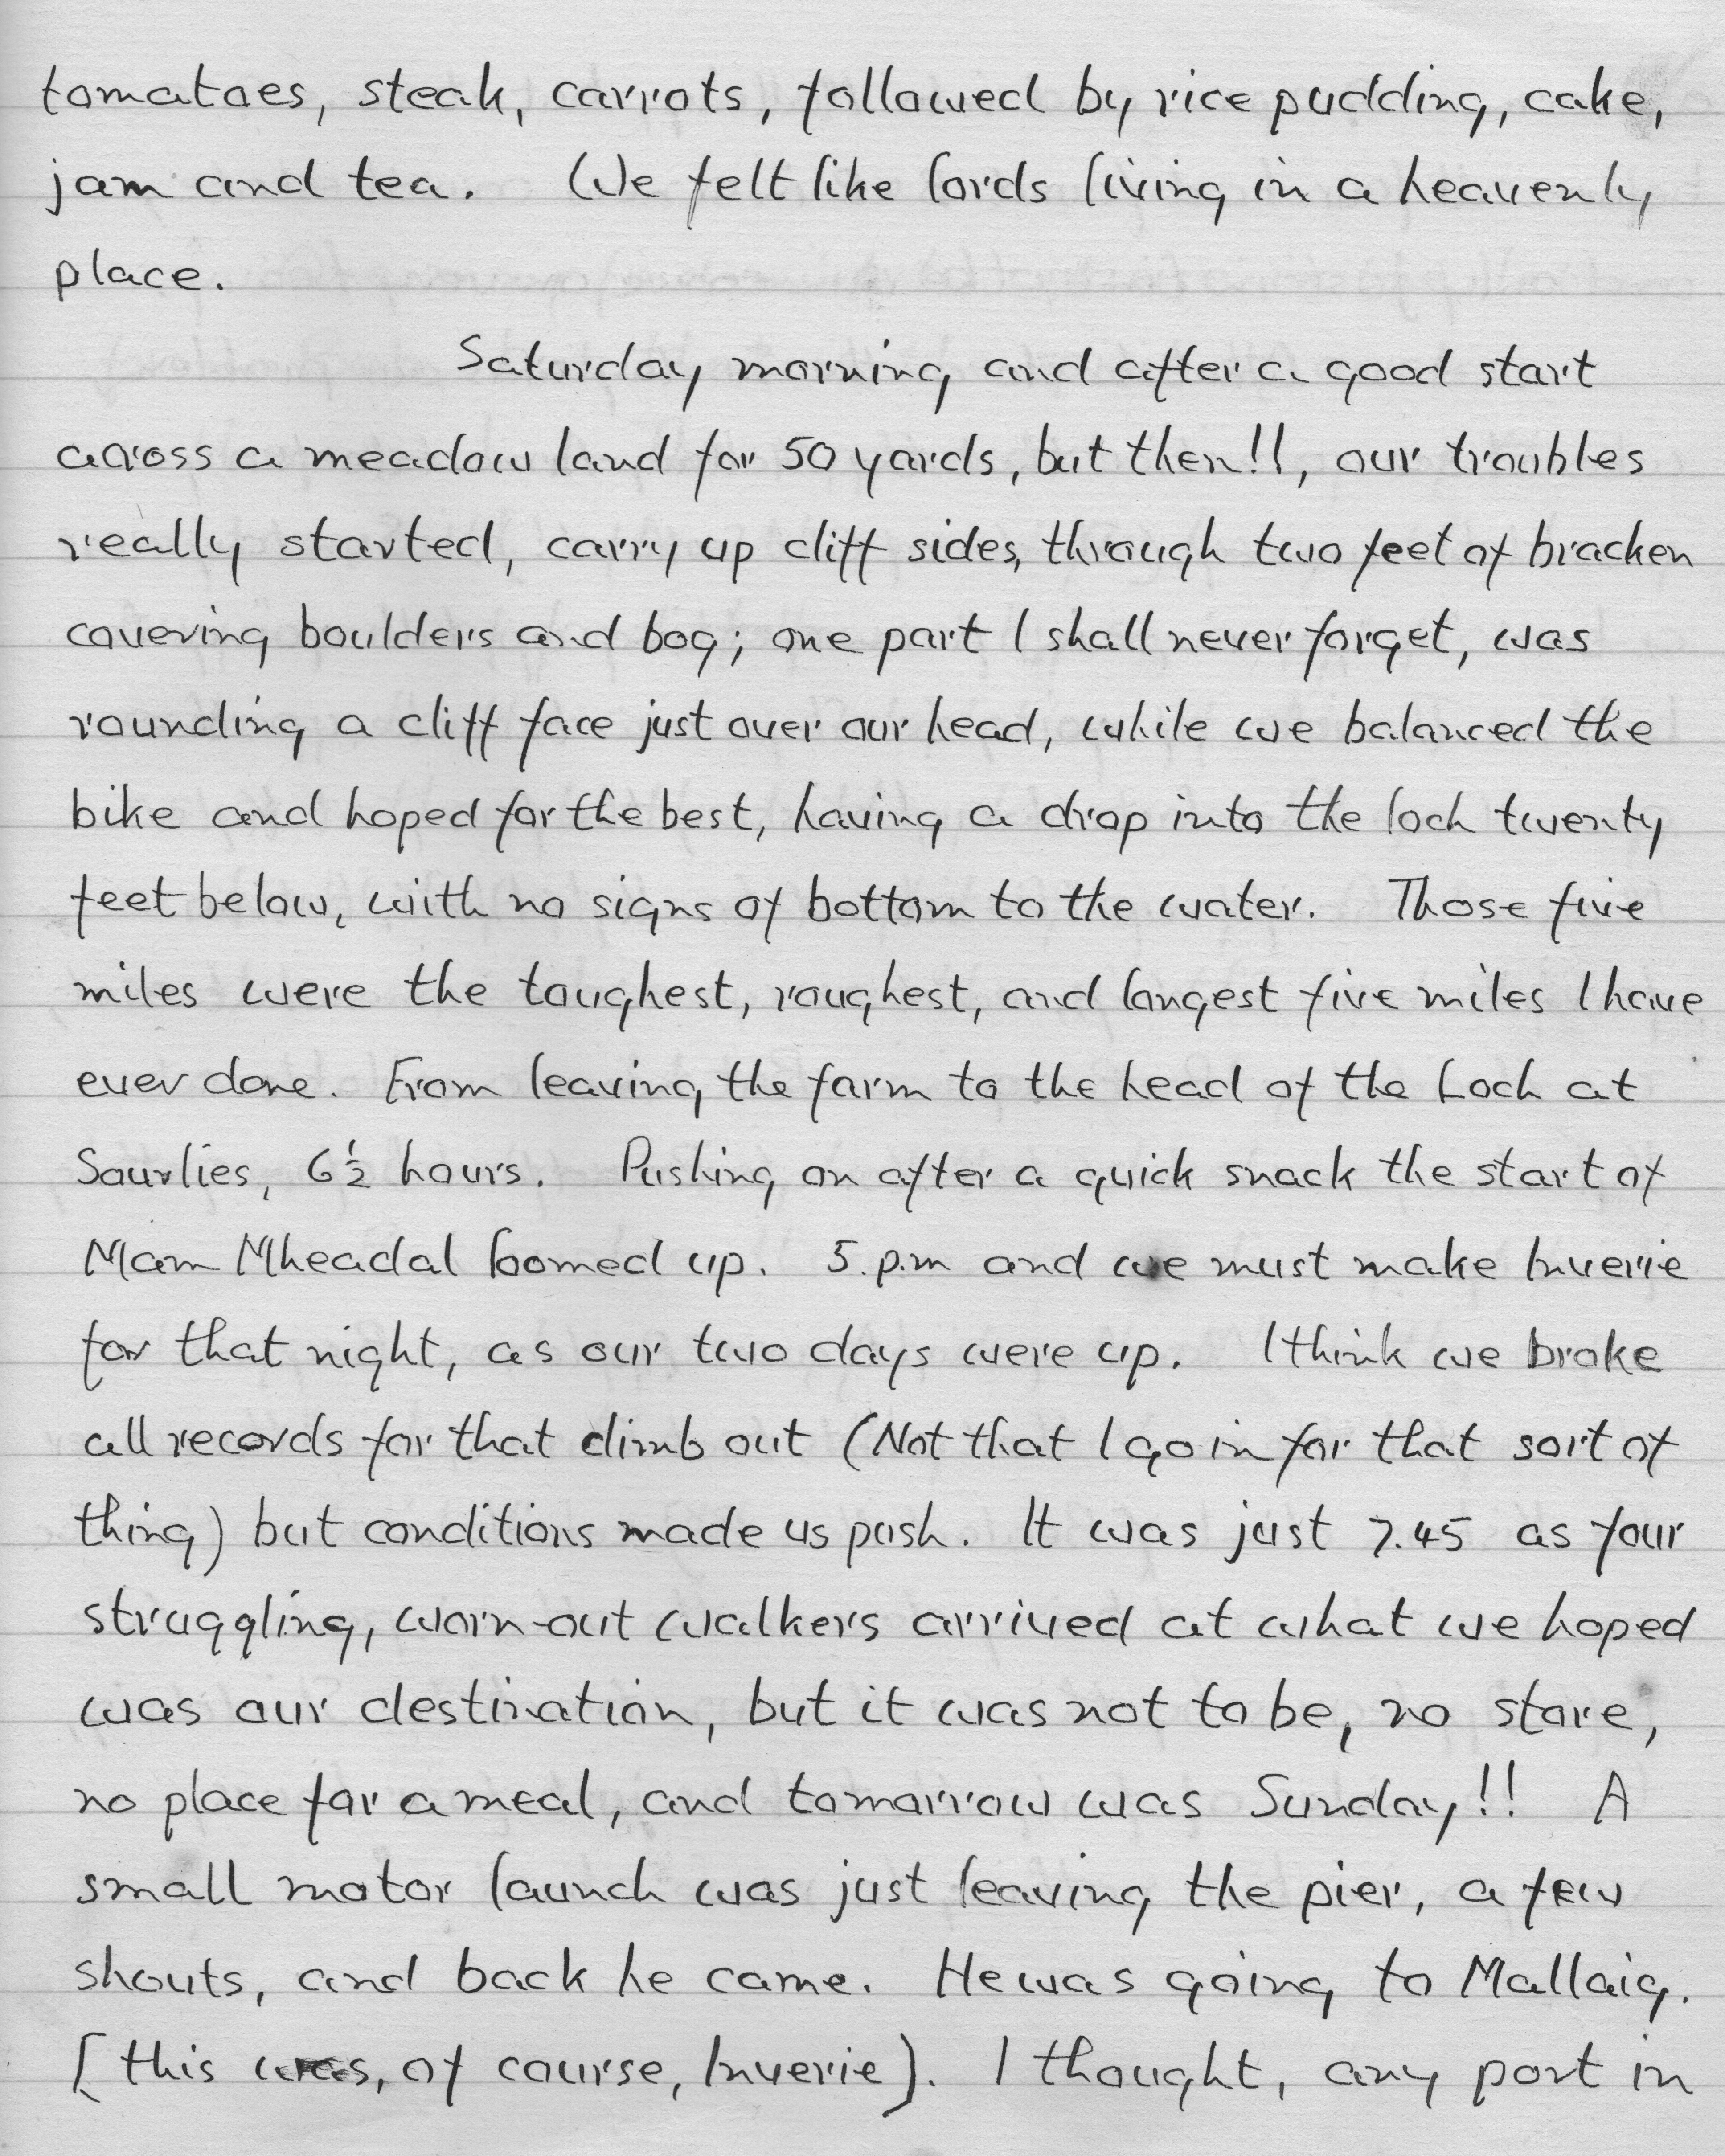 tomatoes, steak, carrots, followed by rice pudding, cake,
jam and tea. We felt like lords living in a heavenly
place.
Saturday morning and after a good start
across a meadow land for 50 yards, but then!!, our troubles
really started, carry up cliff sides, through two feet of bracken
covering boulders and bog; one part I shall never forget, was
rounding a cliff face just over our head, while we balanced the
bike and hoped for the best, having a drop into the loch twenty
feet below, with no signs of bottom to the water. Those five
miles were the toughest, roughest, and longest five miles I have
ever done. From leaving the farm to the head of the Loch at
Sourlies, 6½ hours. Pushing on after a quick snack the start of
Mam Mheadal loomed up. 5.p.m and we must make Inverie
for that night, as our two days were up. I think we broke
all records for that climb out (Not that I go in for that sort of
thing) but conditions made us push. It was just 7.45 as four
struggling, worn-out walkers arrived at what we hoped
was our destination, but it was not to be, no store,
no place for a meal, and tomorrow was Sunday!! A
small motor launch was just leaving the pier, a few
shouts, and back he came. He was going to Mallaig.
[this was, of course, Inverie). I thought, any port in